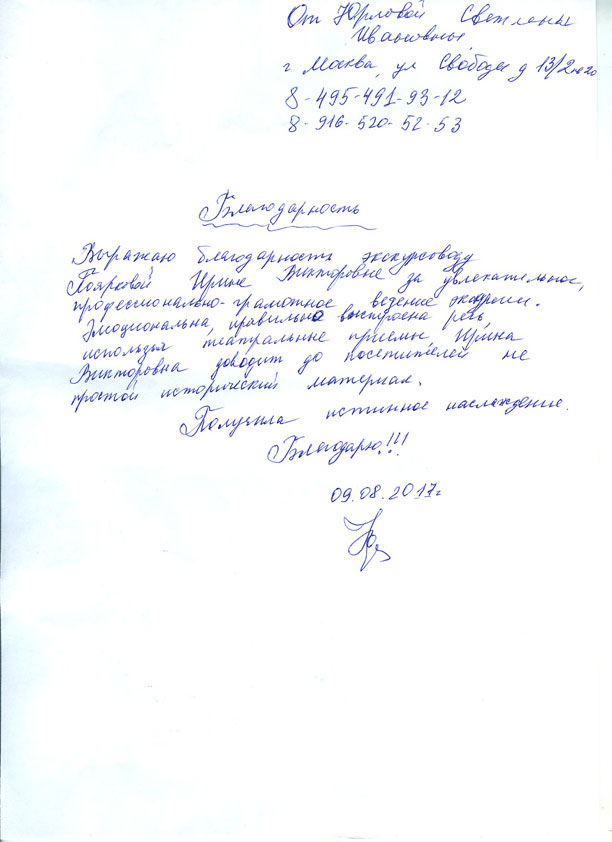 От Юрловой Светланы
Ивановны
г Москва, ул Свободы д 13/2 кв 20
8-495-491-93-12
8-916-520-52-53
Благодарность
Выражаю благодарность экскурсоводу
Поярковой Ирине Викторовне за увлекательное,
профессионально-грамотное ведение экскурсии.
Эмоциональна, правильно выстроена речь
используя театральные приемы, Ирина
Викторовна доводит до посетителей не
простой исторический материал.
Получила истинное наслаждение.
Благодарю!!!
09.08.2017г